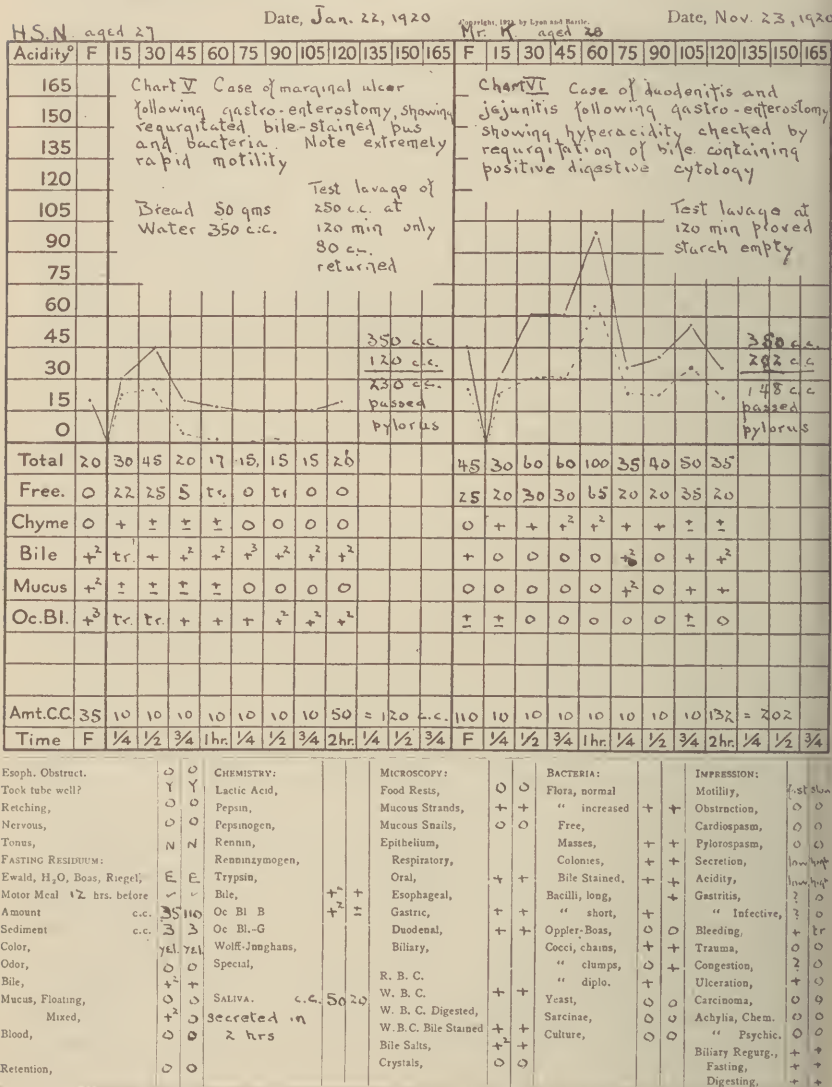 Date, Jan. 22, 1920
Copyright, 1921, by Lyon and Bartle.
Date, Nov. 23, 1920
H.S.N. aged 27
Mr. K. aged 28
Acidity° F 15 30 45 60 75 90 105 120 135 150 165 F 15 30 45 60 75 90 105 120 135 150 165
165
150
135
120
105
90
75
60
45
30
15
0
Chart V Case of marginal ulcer
following gastro-enterostomy, showing
regurgitated bile-stained pus
and bacteria. Note extremely
rapid motility
Bread 50 gms
Water 350 c.c.
Test lavage of
250 c.c. at
120 min only
80 c.c.
returned
350 c.c.
120 c.c.
230 c.c.
passed
pylorus
Chart VI Case of duodenitis and
jejunitis following gastro-enterostomy
showing hyperacidity checked by
regurgitation of bile containing
positive digestive cytology
Test lavage at
120 min proved
starch empty
350 c.c.
202 c.c
148 c.c
passed
pylorus
Total 20 30 45 20 17 15, 15 15 20 45 30 60 60 100 35 40 50 35
Free. 0 22 25 5 tr. 0 tr 0 0 25 20 30 30 65 20 20 35 20
Chyme 0 + ± ± ± 0 0 0 0 0 + + +² +² + + ± ±
Bile +² tr. + +² +² +³ +² +² +² + 0 0 0 0 +² 0 + +²
Mucus +² ± ± ± ± 0 0 0 0 0 0 0 0 0 +² 0 + +
Oc.Bl. +³ tr. tr. + + + +² +² +² ± ± 0 0 0 0 0 ± 0
Amt.C.C. 35 10 10 10 10 10 10 10 50 = 120 c.c. 110 10 10 10 10 10 10 10 132 = 202
Time F 1/4 1/2 3/4 1hr. 1/4 1/2 3/4 2hr. 1/4 1/2 3/4 F 1/4 1/2 3/4 1hr. 1/4 1/2 3/4 2hr. 1/4 1/2 3/4
Esoph. Obstruct. 0 0
Took tube well? Y Y
Retching, 0 0
Nervous, 0 0
Tonus, N N
FASTING RESIDUUM:
Ewald, H₂O, Boas, Riegel, E E
Motor Meal 12 hrs. before ✓ ✓
Amount c.c. 35 110
Sediment c.c. 3 3
Color, yel. yel.
Odor, 0 0
Bile, +² +
Mucus, Floating, 0 0
Mixed, +² 0
Blood, 0 0
Retention, 0 0
CHEMISTRY:
Lactic Acid,
Pepsin,
Pepsinogen,
Rennin,
Renninzymogen,
Trypsin,
Bile, +² +
Oc Bl B +² ±
Oc Bl.-G
Wolff-Junghans,
Special,
SALIVA. c.c. 50 20
secreted in
2 hrs
MICROSCOPY:
Food Rests, 0 0
Mucous Strands, + +
Mucous Snails, 0 0
Epithelium,
Respiratory,
Oral, + +
Esophageal,
Gastric, + +
Duodenal, + +
Biliary,
R. B. C.
W. B. C. + +
W. B. C. Digested,
W.B.C. Bile Stained + +
Bile Salts, +² +
Crystals, 0 0
BACTERIA:
Flora, normal
" increased + +
Free,
Masses, + +
Colonies, + +
Bile Stained, + +
Bacilli, long, +
" short, +
Oppler-Boas, 0 0
Cocci, chains, + +
" clumps, 0 +
" diplo. +
Yeast, 0 0
Sarcinae, 0 0
Culture, 0 0
IMPRESSION:
Motility, fast slow
Obstruction, 0 0
Cardiospasm, 0 0
Pylorospasm, 0 0
Secretion, low high
Acidity, low high
Gastritis, ? 0
" Infective, ? 0
Bleeding, + tr
Trauma, 0 0
Congestion, ? 0
Ulceration, + +
Carcinoma, 0 0
Achylia, Chem. 0 0
" Psychic. 0 0
Biliary Regurg., + +
Fasting, + +
Digesting, + +